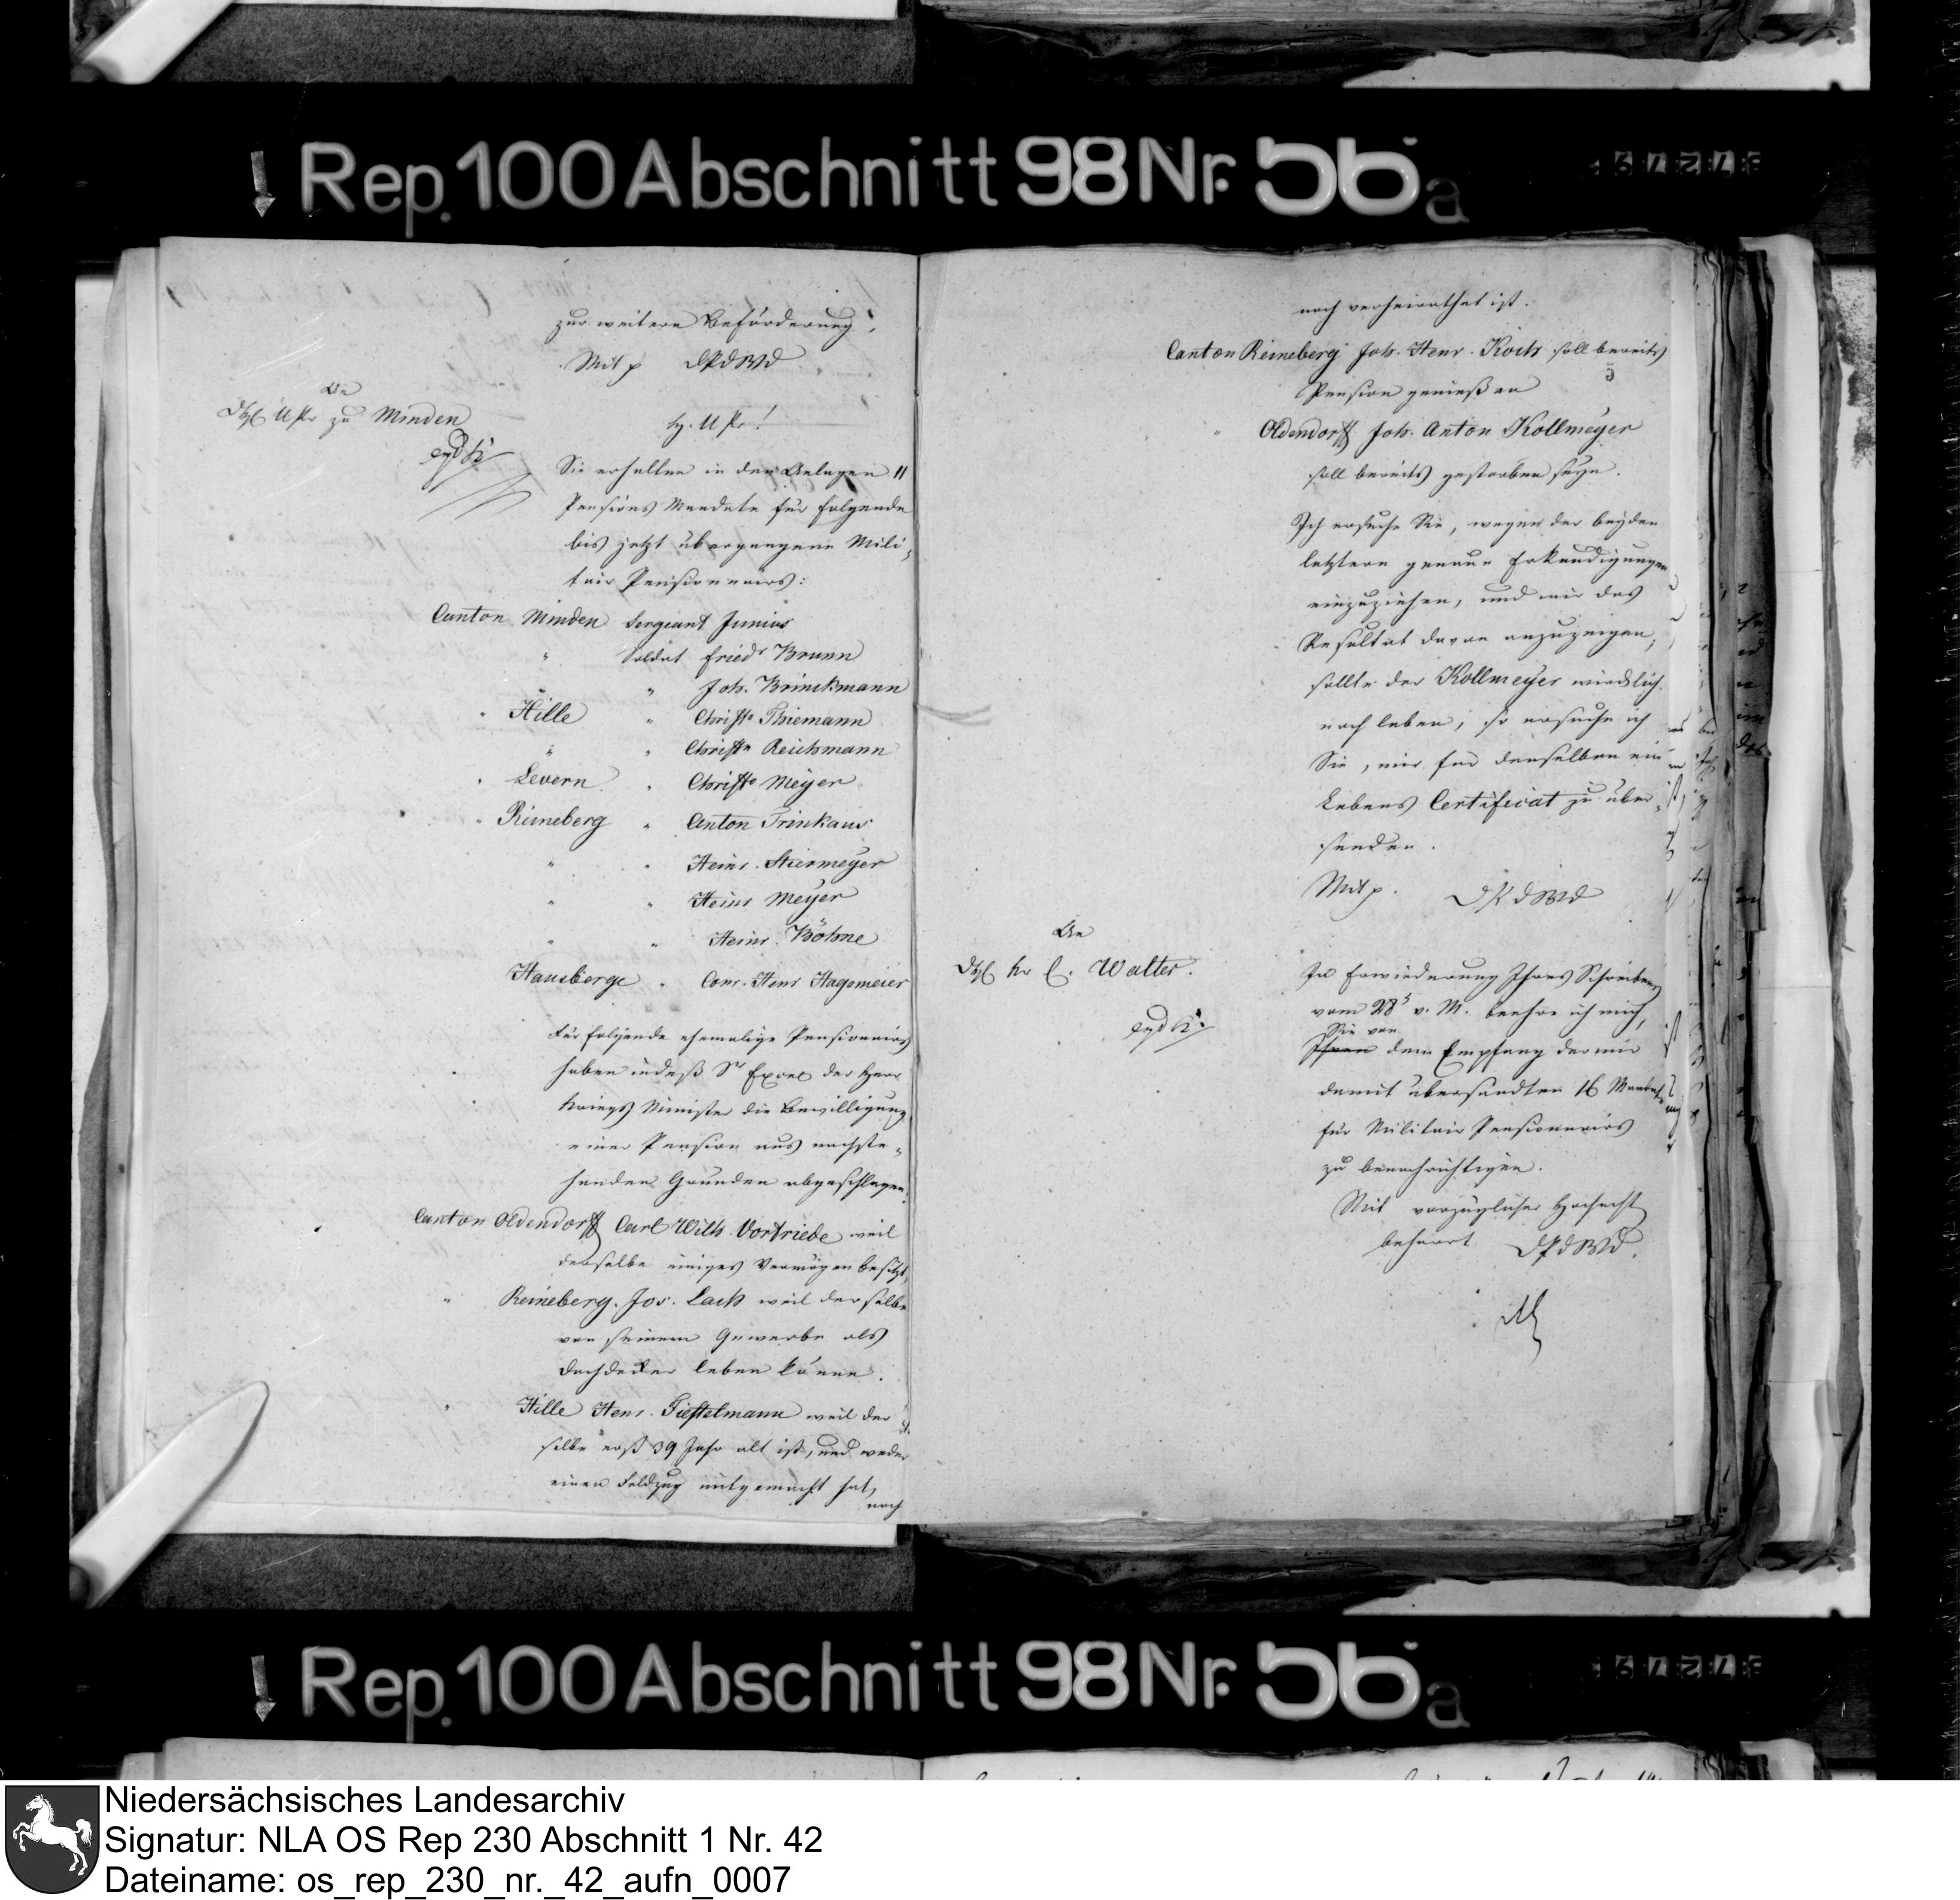 Rep. 100 Abschnitt 98 Nr. 56a
zur weitern Beförderung,
Mit p DPdWD
An
U Pr zu Minden
H. U Pr!
Sie erhalten in den Anlagen 11
Pensions Mandate für folgende
bis jetzt übergangene Mili-
tair Pensionnairs:
Canton Minden Sergeant Junius
" Soldat Friedr Brunn
" " Joh. Brinckmann
" Hille " Christ. Thiemann
" " Christn Reichmann
" Levern " Christn Meyer
" Reineberg " Anton Trinkaus
" " Heinr. Stiermeyer
" " Heinr Meyer
" " Heinr. Böhne
Hausberge " Conr. Henr Hagemeier
Für folgende ehemalige Pensionnairs
haben indeß Sr Excel der Herr
Kriegs Minister die Bewilligung
einer Pension aus nachste-
henden Gründen abgeschlagen.
Canton Oldendorff Carl Wilh. Vortriede weil
derselbe einiges Vermögen besitzt,
" Reineberg. Jos. Lach weil derselbe
von seinem Gewerbe als
Dachdecker leben könne.
" Hille Henr. Tieftelmann weil der
selbe erst 39 Jahr alt ist, und weder
einen Feldzug mitgemacht hat,
noch
noch verheirathet ist.
Canton Reineberg Joh. Henr. Koch soll bereits
Pension genießen
" Oldendorff Joh. Anton Kollmeyer
soll bereits gestorben seyn.
Ich ersuche Sie, wegen der beyden
letztern genaue Erkundigungen
einzuziehen, und mir das
Resultat davon anzuzeigen,
sollte der Kollmeyer wircklich
noch leben, so ersuche ich
Sie, mir für denselben ein
Lebens Certificat zu über-
senden.
Mit p. DPdWD
An
Walter.
In Erwiederung Ihres Schreibens
vom 28s v. M. beehre ich mich,
Sie von
Ihnen dem Empfang der mir
damit übersandten 16 Mandate
für Militair Pensionnairs
zu benachrichtigen.
Mit vorzüglicher Hochacht
beharrt DPdWD.
Rep. 100 Abschnitt 98 Nr. 56a
Niedersächsisches Landesarchiv
Signatur: NLA OS Rep 230 Abschnitt 1 Nr. 42
Dateiname: os_rep_230_nr._42_aufn_0007